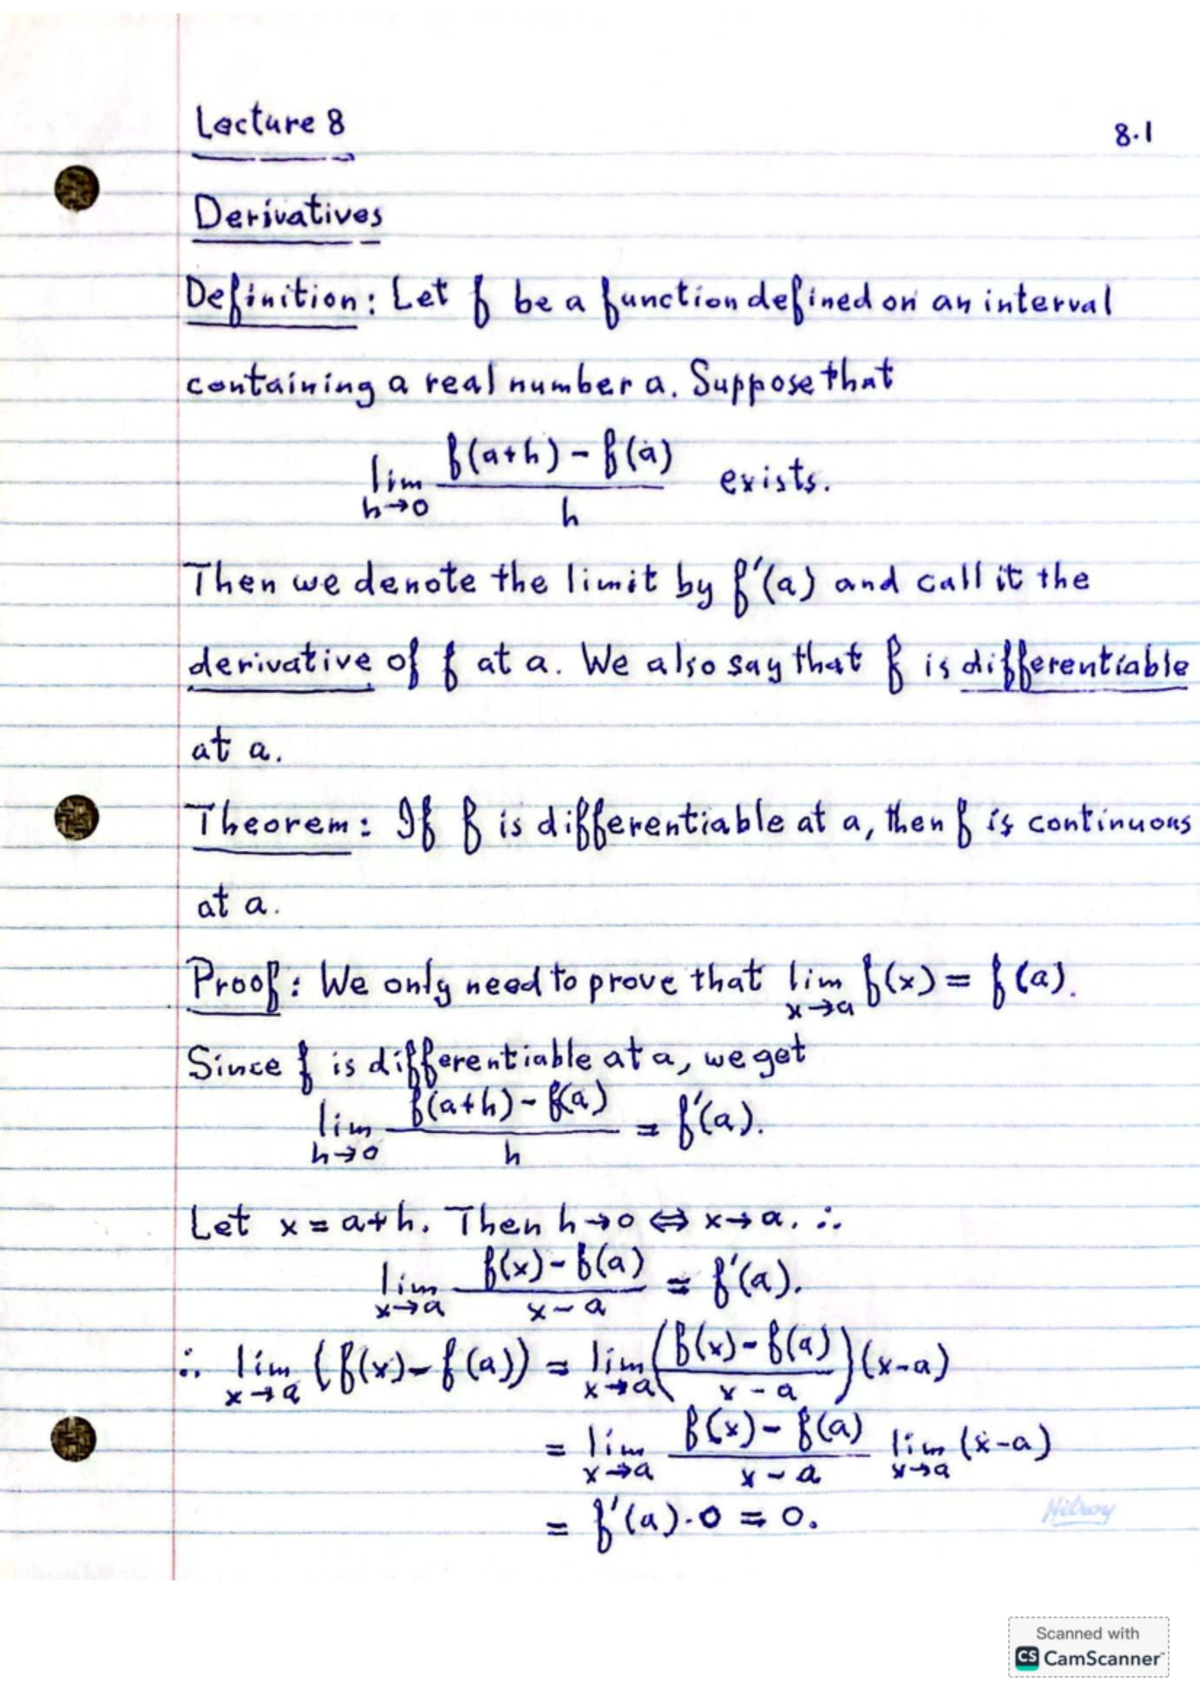 Lecture 8
8.1
Derivatives
Definition: Let f be a function defined on an interval
containing a real number a. Suppose that
lim h→0 (f(a+h) - f(a))/h exists.
Then we denote the limit by f'(a) and call it the
derivative of f at a. We also say that f is differentiable
at a.
Theorem: If f is differentiable at a, then f is continuous
at a.
Proof: We only need to prove that lim x→a f(x) = f(a).
Since f is differentiable at a, we get
lim h→0 (f(a+h) - f(a))/h = f'(a).
Let x = a+h. Then h→0 ⇔ x→a. ∴
lim x→a (f(x) - f(a))/(x - a) = f'(a).
∴ lim x→a (f(x) - f(a)) = lim x→a ((f(x) - f(a))/(x - a)) (x-a)
= lim x→a (f(x) - f(a))/(x - a) lim x→a (x-a)
= f'(a)·0 = 0.
Scanned with
CS CamScanner